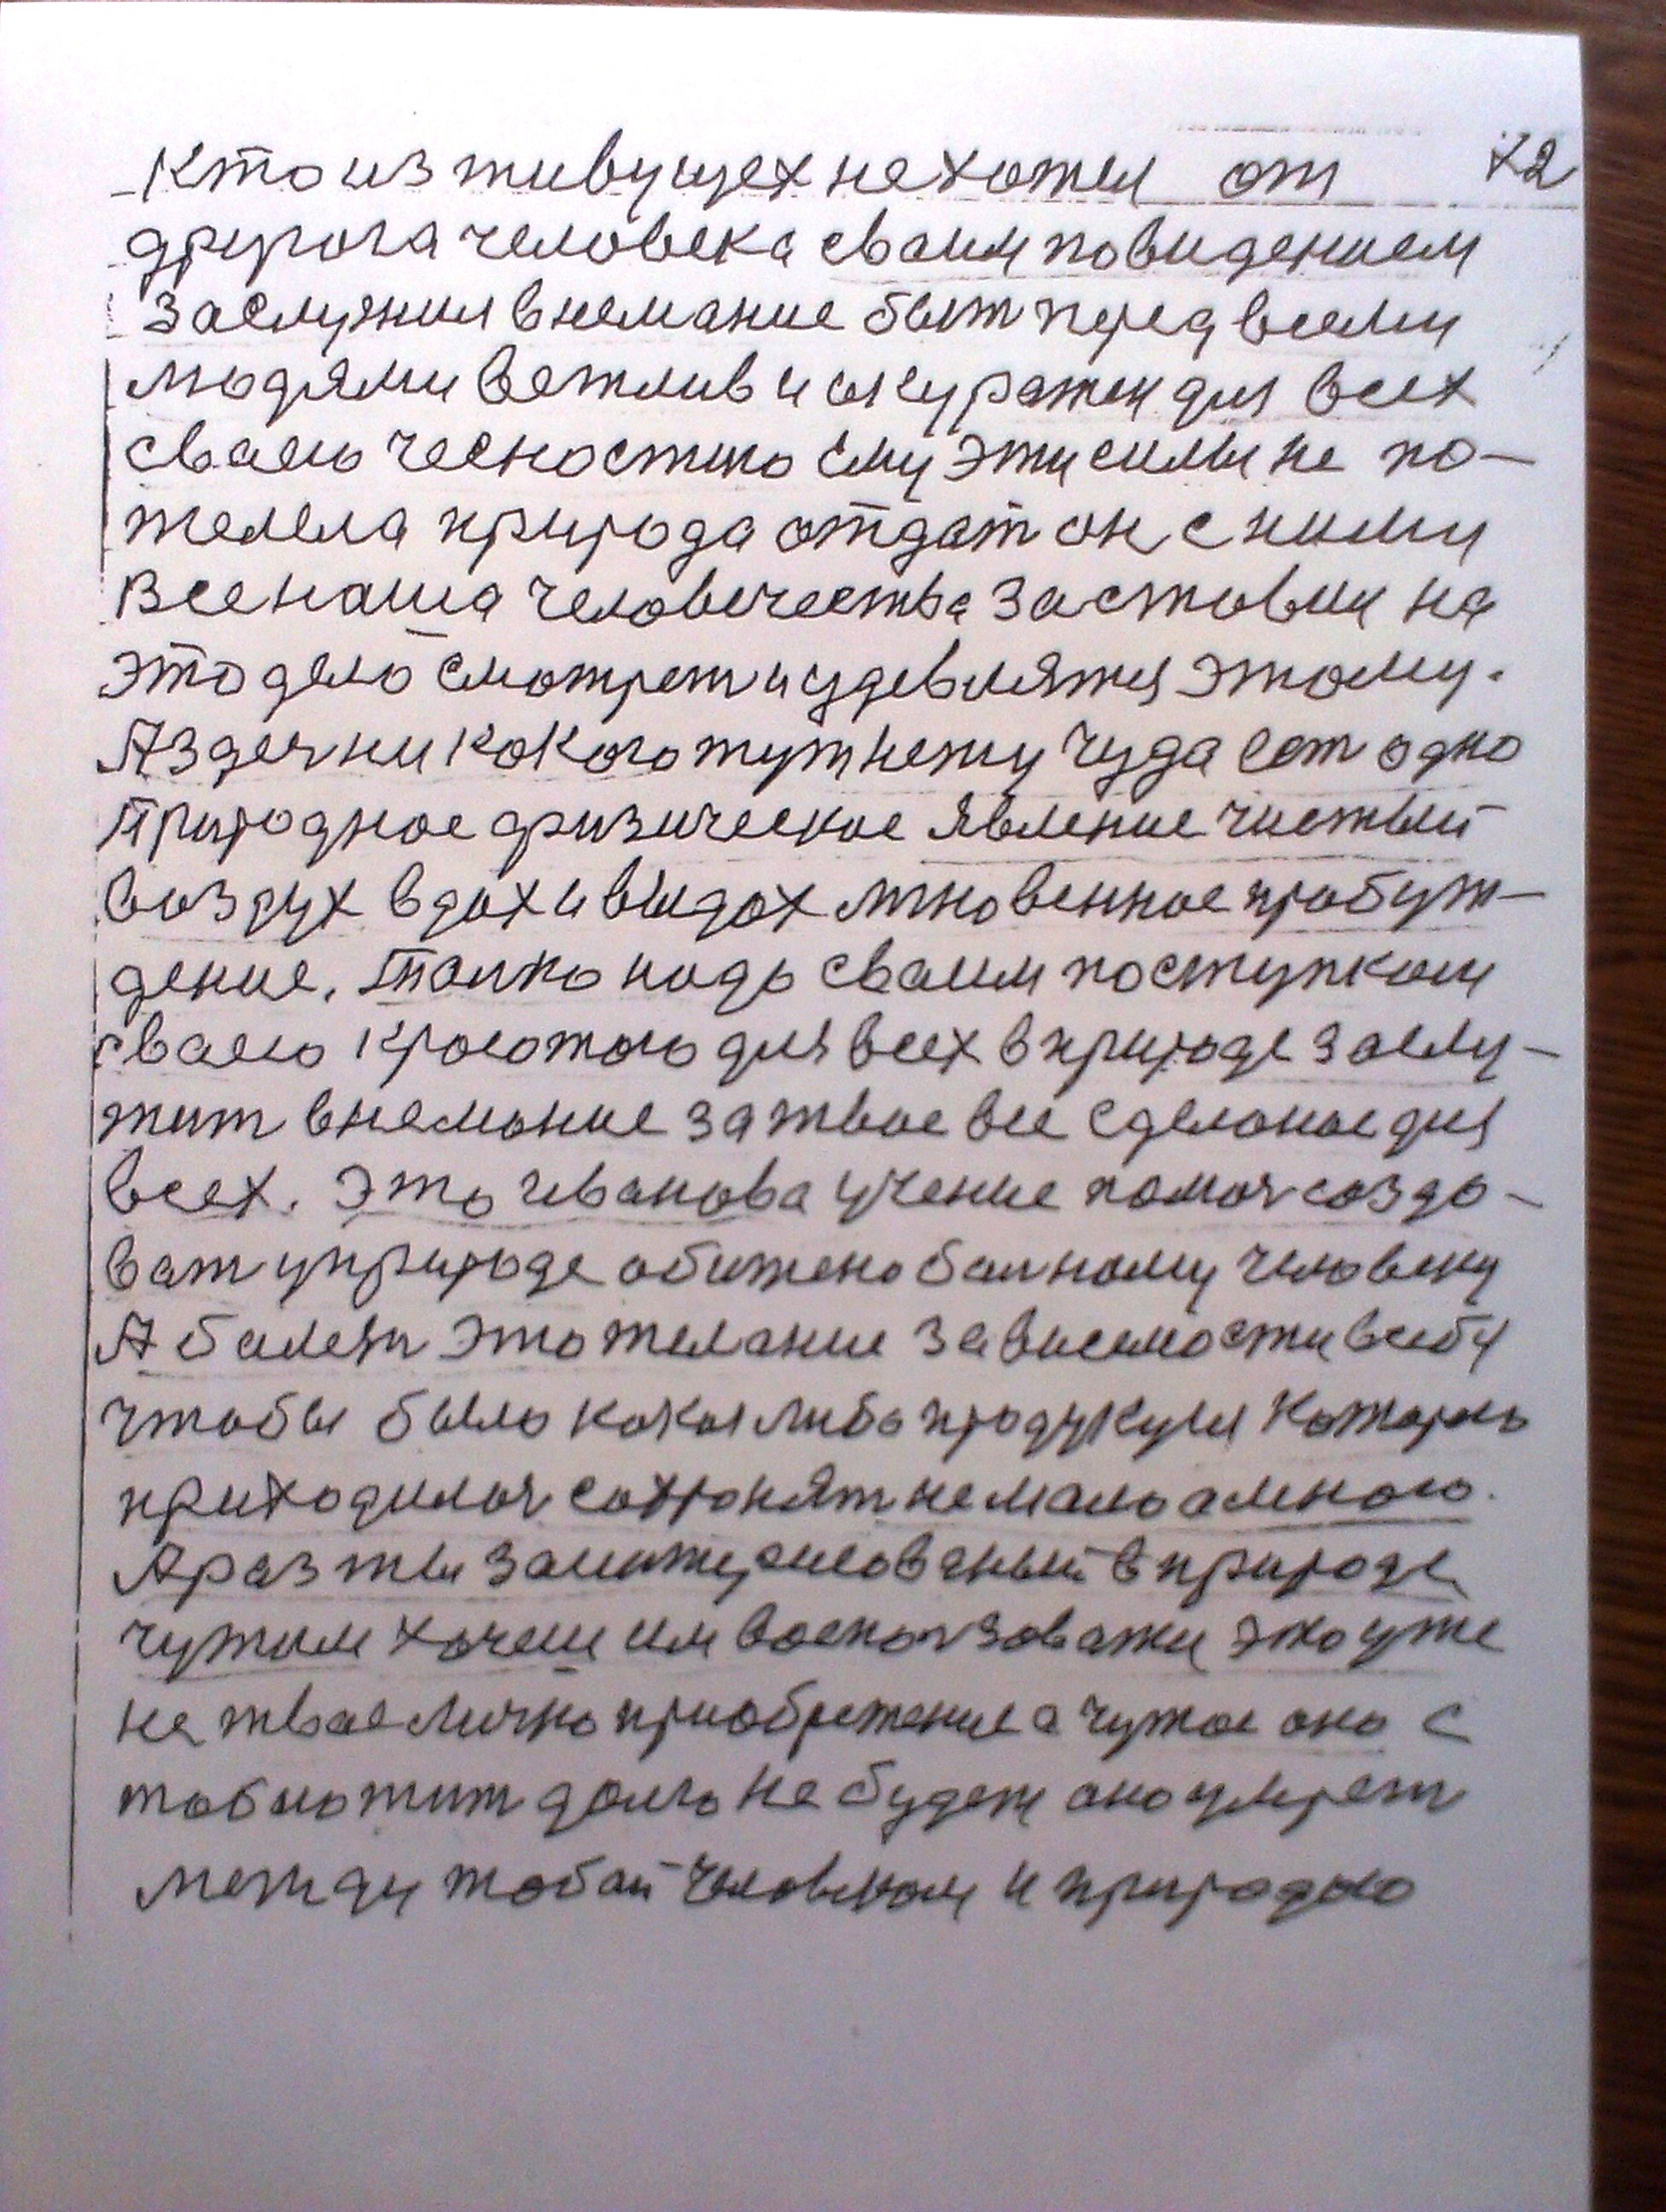 Кто из живущех не хотел от 72
другога человека сваим повидением
заслужил внемание быт перед всеми
людями вежлив и акуратен для всех
сваею чесностию ему эти силы не по-
желела природа отдат он с ними
все наша человечества заставил на
это дело смотрет и удевлятся этому.
А здеч ни какого тут нету чуда ест одно
природное физическое явление чистый
воздух вдох и выдох мгновенное пробуж-
дение. Толко надо сваим поступком
сваею красотою для всех в природе заслу-
жит внемание за твое все сделаное для
всех. Это иванова учение помоч создо-
ват у природе обижено балному человеку
А балеет это желание зависемости в себя
чтобы было кокая либо продукция которою
приходилоч сохронят не мало а много.
А раз ты заинтересованый в природе
чужим хочеш им воспользоватся это уже
не твае лично приобретение а чужое оно с
тобою жит долго не будет оно умрет
между тобой человеком и природою